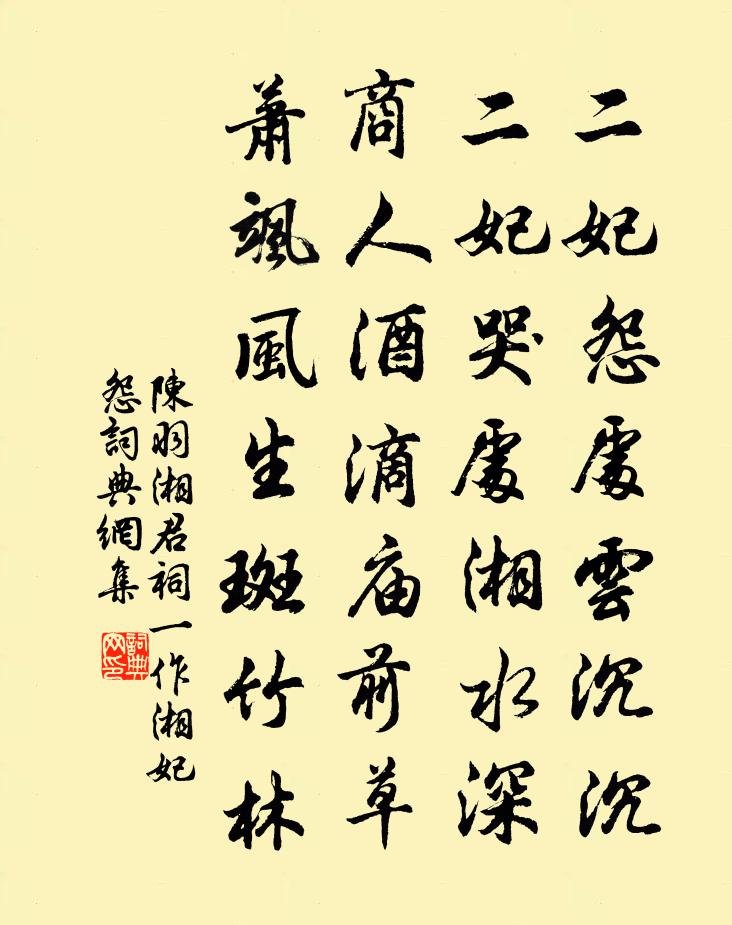 二妃怨處雲沉沉
二妃哭處湘水深
商人酒滴庙前草
蕭颯風生斑竹林
陳羽湘君祠一作湘妃
怨詞典網集
詞典网印